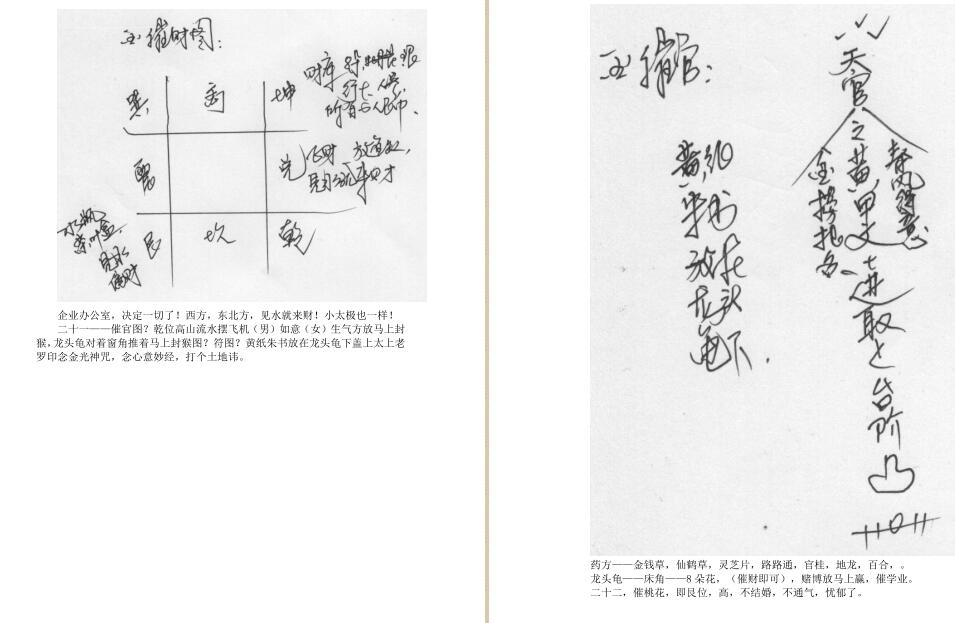 催财图：
巽 离 坤
财库
震 兑
飞财 放鱼缸，
见水流来财
水瓶
茶叶盒
见水
偏财
艮 坎 乾
企业办公室，决定一切了！西方，东北方，见水就来财！小太极也一样！
二十一——催官图？乾位高山流水摆飞机（男）如意（女）生气方放马上封
猴，龙头龟对着窗角推着马上封猴图？符图？黄纸朱书放在龙头龟下盖上太上老
罗印念金光神咒，念心意妙经，打个土地讳。
催官：
黄纸
朱书
放在
龙头
龟下.
天官
之
黄甲
金榜
挂名
春风得意
进取
台阶
药方——金钱草，仙鹤草，灵芝片，路路通，官桂，地龙，百合，。
龙头龟——床角——8 朵花，（催财即可），赌博放马上赢，催学业。
二十二，催桃花，即艮位，高，不结婚，不通气，忧郁了。